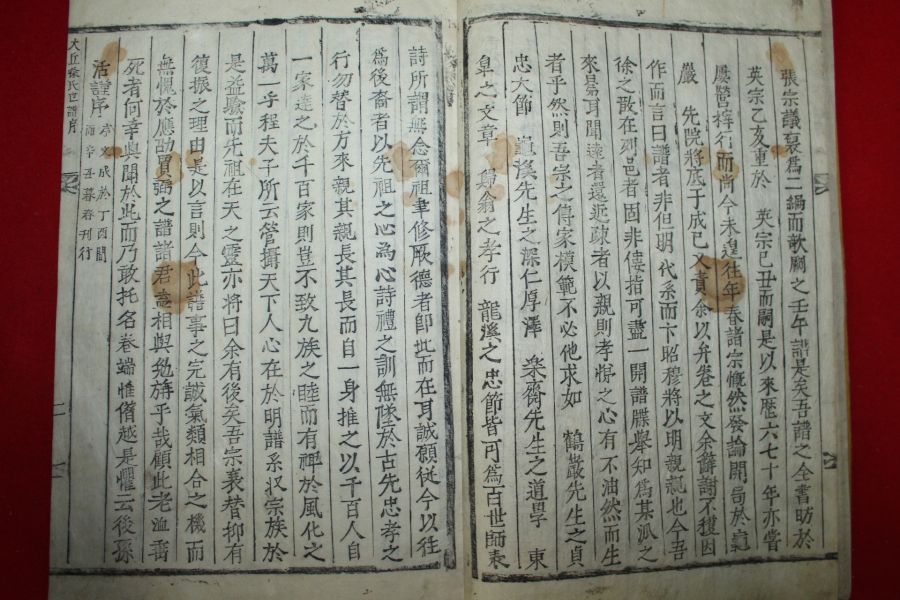 張宗議裒爲一編而歌 之壬午譜是矣吾譜之全書昉於
英宗乙亥重於 英宗己丑而嗣是以來歷六七十年亦嘗
屢營梓行而尙今未遑往年春諸宗慨然發論開局於
巖 先院將底于成已又責余以弁卷之文余辭謝不獲因
作而言曰譜者非但明 代系而卞昭穆將以明親親也今吾
徐之散在列邑者固非僂指可盡一開譜牒擧知爲某派之
來昜耳聞遠者還近疎者以親則孝悌之心有不油然而生
者乎然則吾宗之傳家模範不必他求如 鶴巖先生之貞
忠大節 溪先生之深仁厚澤 樂齋先生之道學 東
臯之文章 翁之孝行 龍溪之忠節皆可爲百世師表
詩所謂無念爾祖聿修厥德者卽此而在耳誠願從今以往
爲後裔者以先祖之心為心詩禮之訓無墜於古先忠孝之
行勿替於方來親其親長其長而自一身推之以千百人自
一家達之於千百家則豈不致九族之睦而有裨於風化之
萬一乎程夫子所云管攝天下人心在於明譜系収宗族於
是益驗而先祖在天之靈亦將曰余有後矣吾宗衰替抑有
復振之理由是以言則今此譜事之完誠氣類相合之機而
無愧於應 之譜諸君盍相與勉旃乎哉顧此老洫
死者何幸與聞於此而乃敢托名卷端惟僭越是懼云後孫
活謹序 文成於丁酉 而 暮春刊行
大丘徐氏世譜序
二